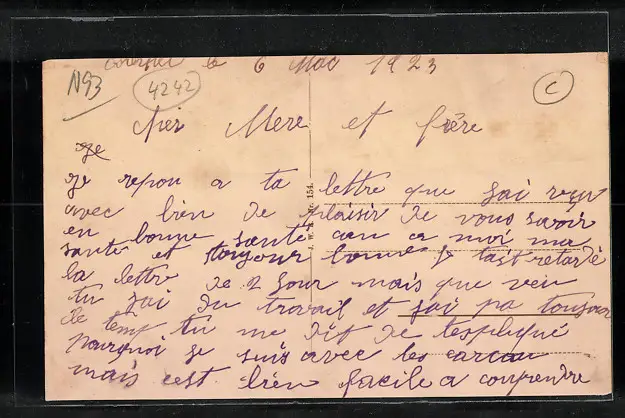 le 6 Mai 1923
N93
4242
C
cher Mere et frère
Je
Je repon a ta lettre que jai reçu
avec bien de plaisir de vous savoir
en bonne santé a moi ma
santé et toujour bonne je tast retarté
la lettre de 2 jour mais que veu
tu jai du travail et jai pa toujour
de temp tu me dit de texpliqué
pourquoi je suis avec les
mais cest bien facile a conprendre
J. W. Nr. 154.